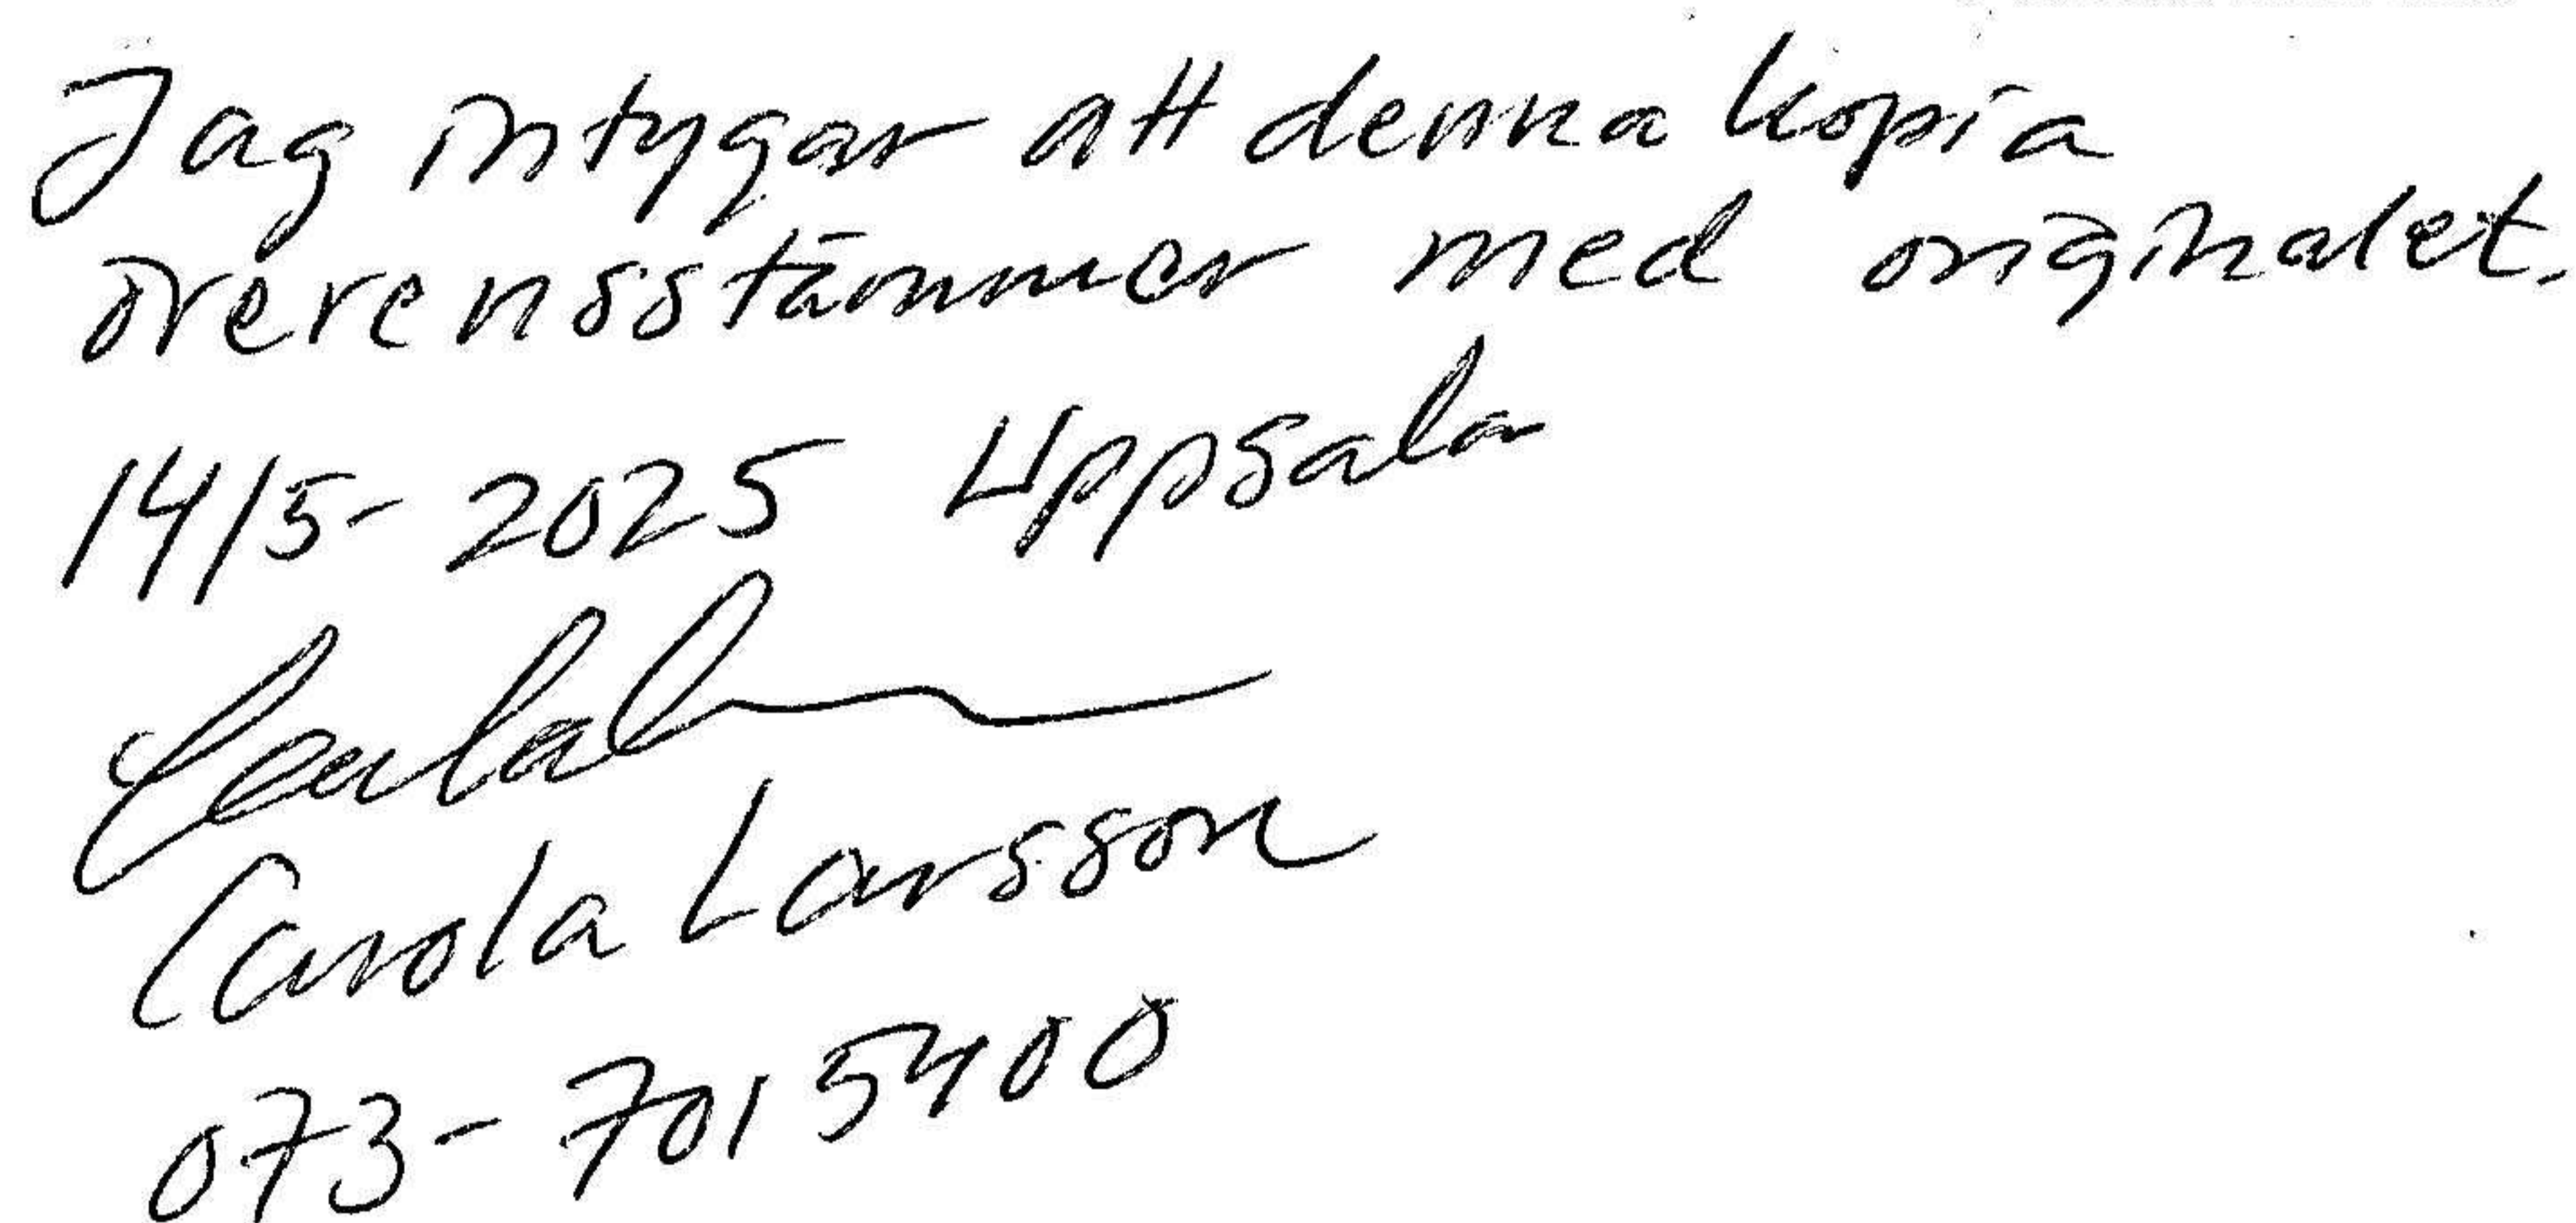 Jag intygar att denna kopia
överensstämmer med originalet.
14/5-2025 Uppsala
Carola Larsson
073-7015400